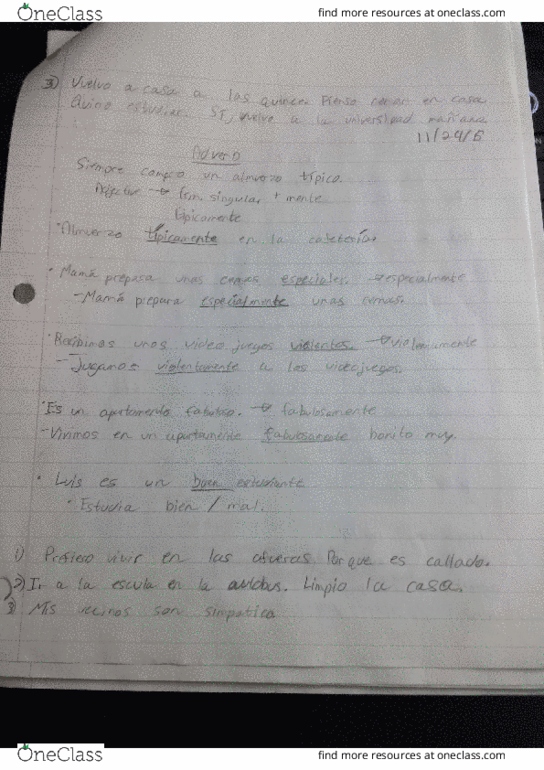 OneClass
find more resources at oneclass.com
3) Vuelvo a casa a las quince. Pienso cenar en casa
estudiar. Sí, vuelvo a la universidad mañana
11/29/6
Adverb
Siempre compro un almuerzo típico.
Adjective → fem. singular + mente
típicamente
• Almuerzo típicamente en la cafetería.
• Mamá prepara unas cenas especiales. → especialmente
- Mamá prepara especialmente unas cenas.
• Recibimos unos video juegos violentos. → violentamente
- Jugamos violentamente a los videojuegos.
• Es un apartamento fabuloso. → fabulosamente
- Vivimos en un apartamento fabulosamente bonito muy.
• Luis es un buen estudiante
• Estudia bien / mal.
1) Prefiero vivir en las afueras Porque es callado.
2) Ir a la escula en la autobus. Limpio la casa.
3 Mis vecinos son simpatica
OneClass
find more resources at oneclass.com